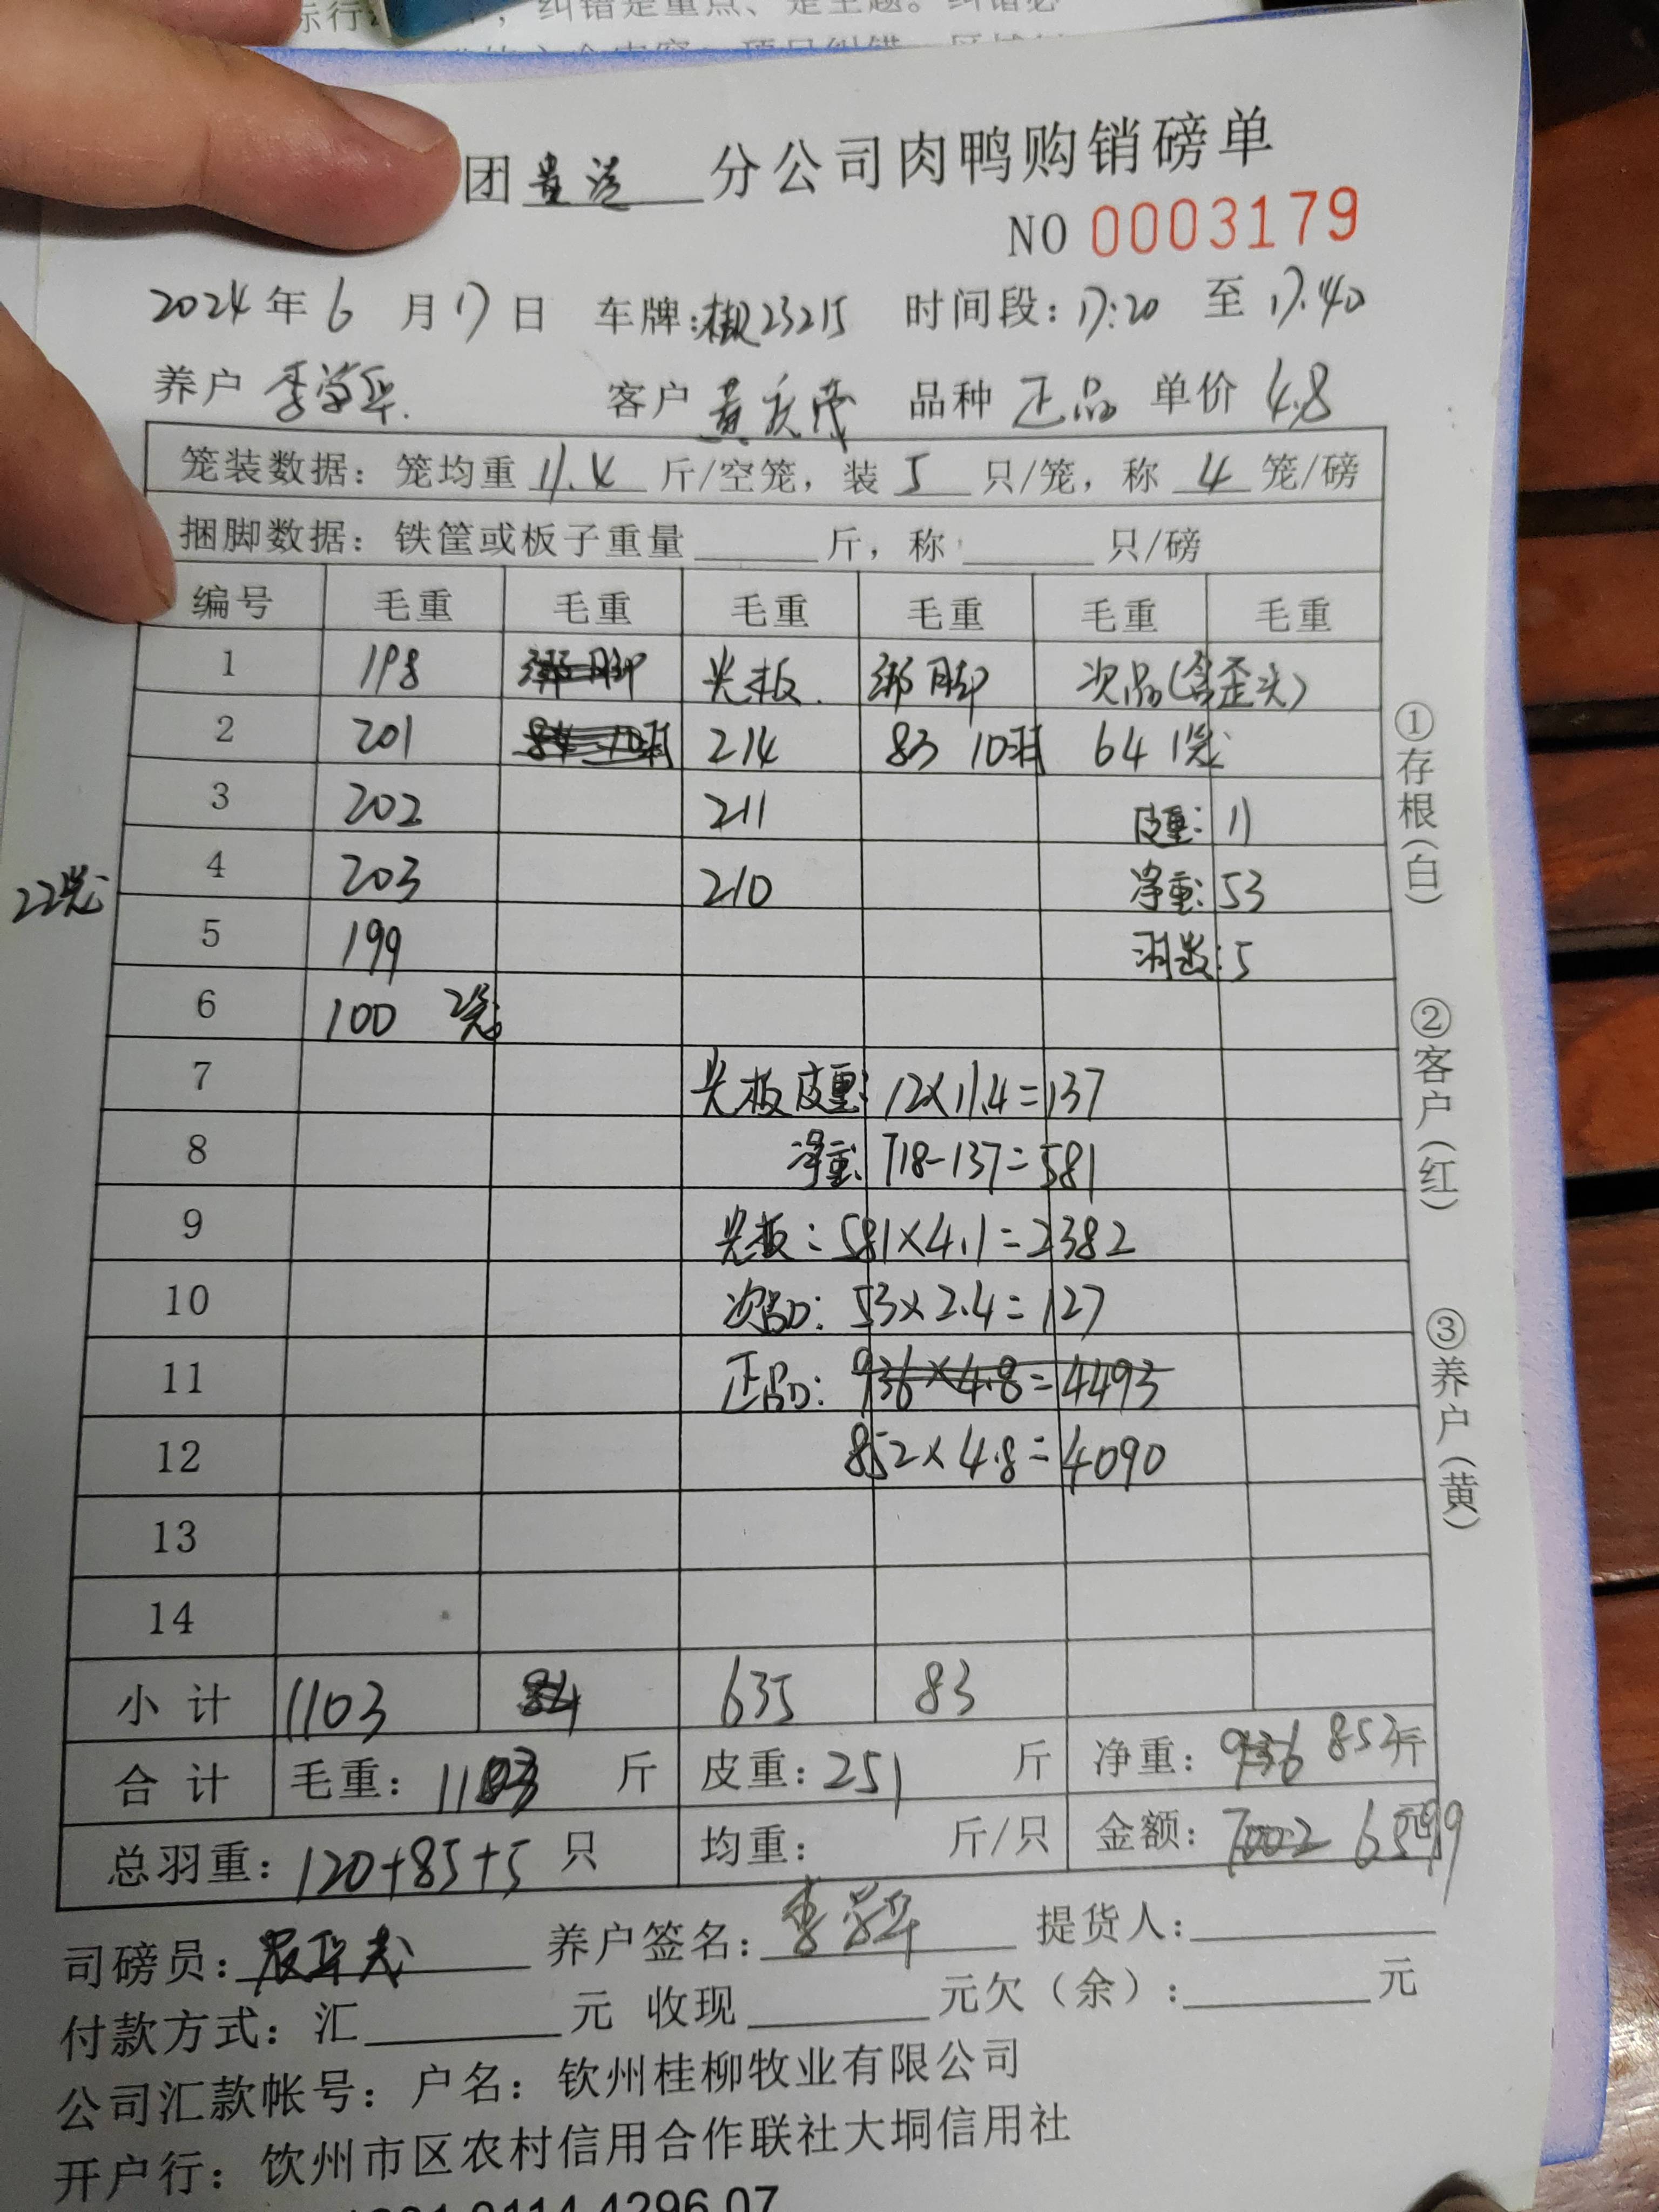 纠错是重点、是主题。纠错必
团 贵港 分公司肉鸭购销磅单
NO 0003179
2024年 6 月 17 日 车牌: 23215 时间段: 17:20 至 17.40
养户 李学华. 客户 黄庆茂 品种 正品 单价 4.8
笼装数据: 笼均重 11.4 斤/空笼, 装 5 只/笼, 称 4 笼/磅
捆脚数据: 铁筐或板子重量 斤, 称 只/磅
编号 毛重 毛重 毛重 毛重 毛重 毛重
1 198 绑脚 光板. 绑脚 次品(含歪头)
2 201 84 10羽 214 83 10羽 64 1笼
3 202 211 皮重: 11
4 203 210 净重: 53
22笼
5 199 羽数: 5
6 100 2笼
7 光板皮重: 12×11.4=137
8 净重: 718-137=581
9 光板: 581×4.1=2382
10 次品: 53×2.4=127
11 正品: 936×4.8=4493
12 852×4.8=4090
13
14
小 计 1103 84 635 83
合 计 毛重: 1103 斤 皮重: 251 斤 净重: 936 852斤
总羽重: 120+85+5 只 均重: 斤/只 金额: 7002 6599元
司磅员: 养户签名: 李学华 提货人:
付款方式: 汇 元 收现 元欠(余): 元
公司汇款帐号: 户名: 钦州桂柳牧业有限公司
开户行: 钦州市区农村信用合作联社大垌信用社
①存根(白)
②客户(红)
③养户(黄)